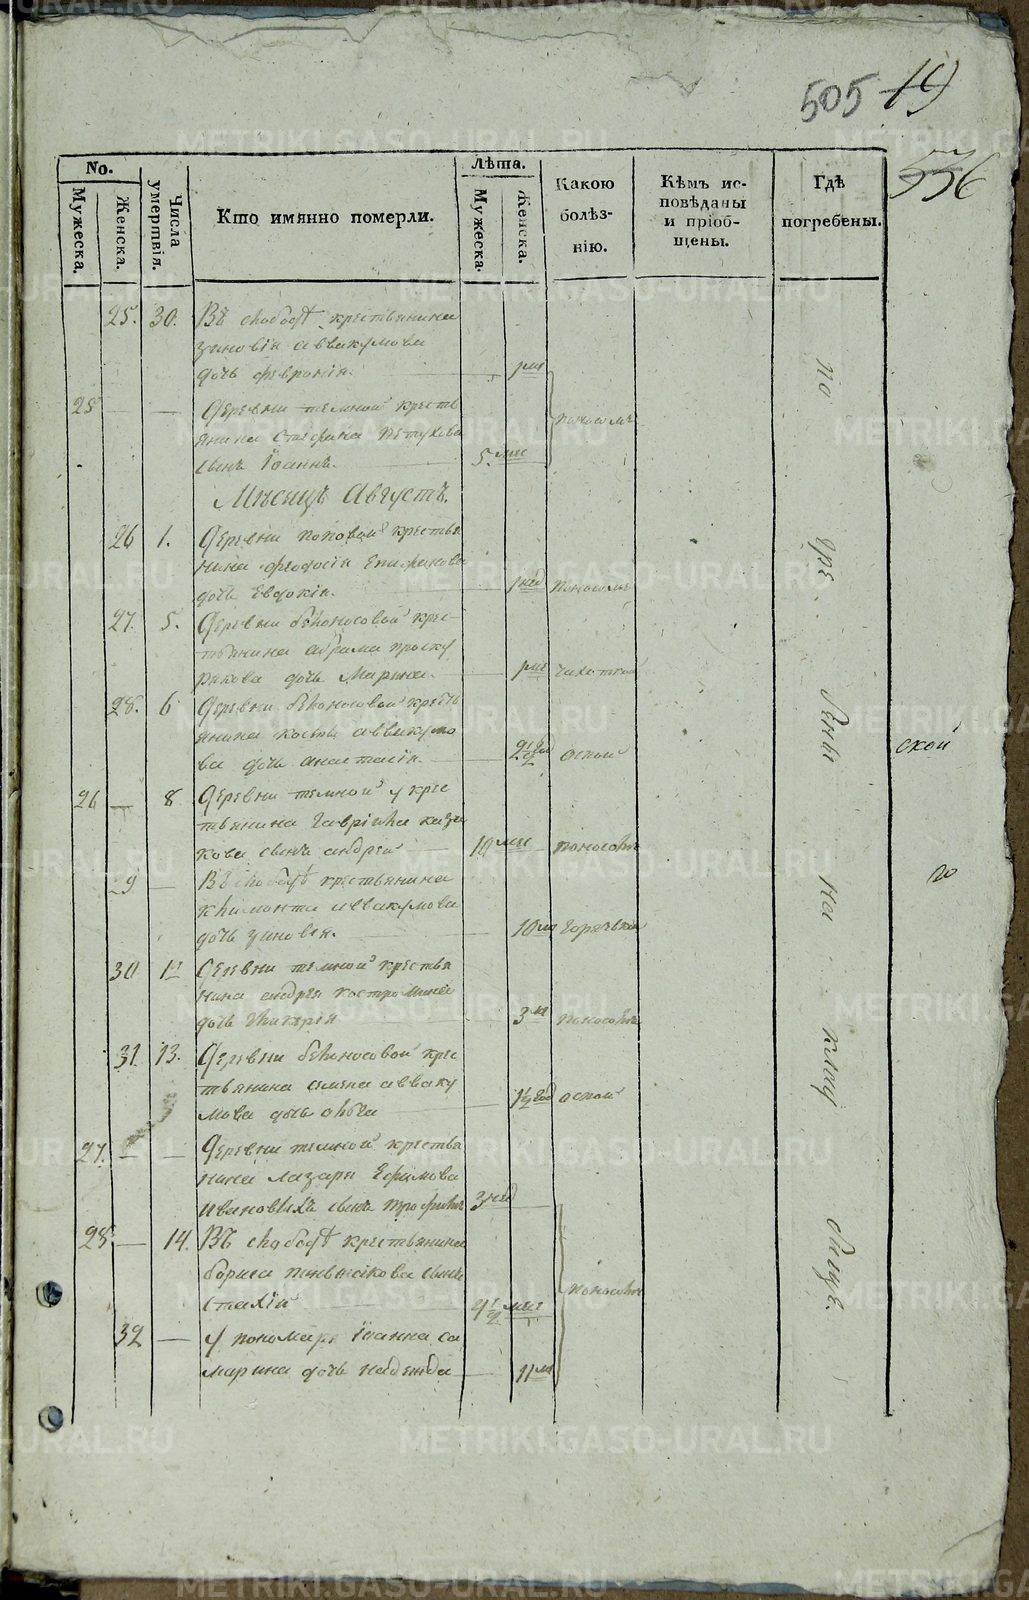 505 19
536
No. Лѣта.
Мужеска. Женска. Числа умертвія. Кто имянно померли. Мужеска. Женска. Какою болѣз-нію. Кѣмъ ис-повѣданы и пріоб-щены. Гдѣ погребены.
25. 30. Въ слободѣ крестьянина
зиновія аввакумова
дочь феврония.
25 — — Деревни темной кресть
янина Стефана Петухова поносомъ
сынъ Іоаннъ. 5. мец
Мѣсяцъ Августъ.
26 1. Деревни поповой крестья
нина феодосія Епифанова
дочь Евдокія. 1 нед поносомъ
27. 5. Деревни бѣлоносовой крес-
тьянина абрама проску
рякова дочь Марина. чахоткой
28. 6 Деревни бѣлоносовой кресть
янина козьмы аввакумо
ва дочь анастасія. 2½ год оспой
26 — 8 Деревни темной у крес
тьянина Гавріила каза
кова сынъ андрей 10 мец поносомъ
29 — Въ слободѣ крестьянина
климонта аввакумова
дочь зиновія. 10 м горячкой
30 11 Деревни темной крестья
нина андрея костромина
дочь Гликерія 3 м поносомъ
31. 13. Деревни бѣлоносовой крес
тьянина семена авваку
мова дочь ольга 1½ год оспой
27. — — Деревни темной крестья
нина лазаря Ефимова
ивановыхъ сынъ трофимъ 3 нед
28 — 14. Въ слободѣ крестьянина
бориса пьянкова сынъ поносомъ
Стахій
32 — У пономаря Іоанна са
марина дочь надежда 11 м
по гре бены на клад бищѣ.
ской
го
METRIKI.GASO-URAL.RU